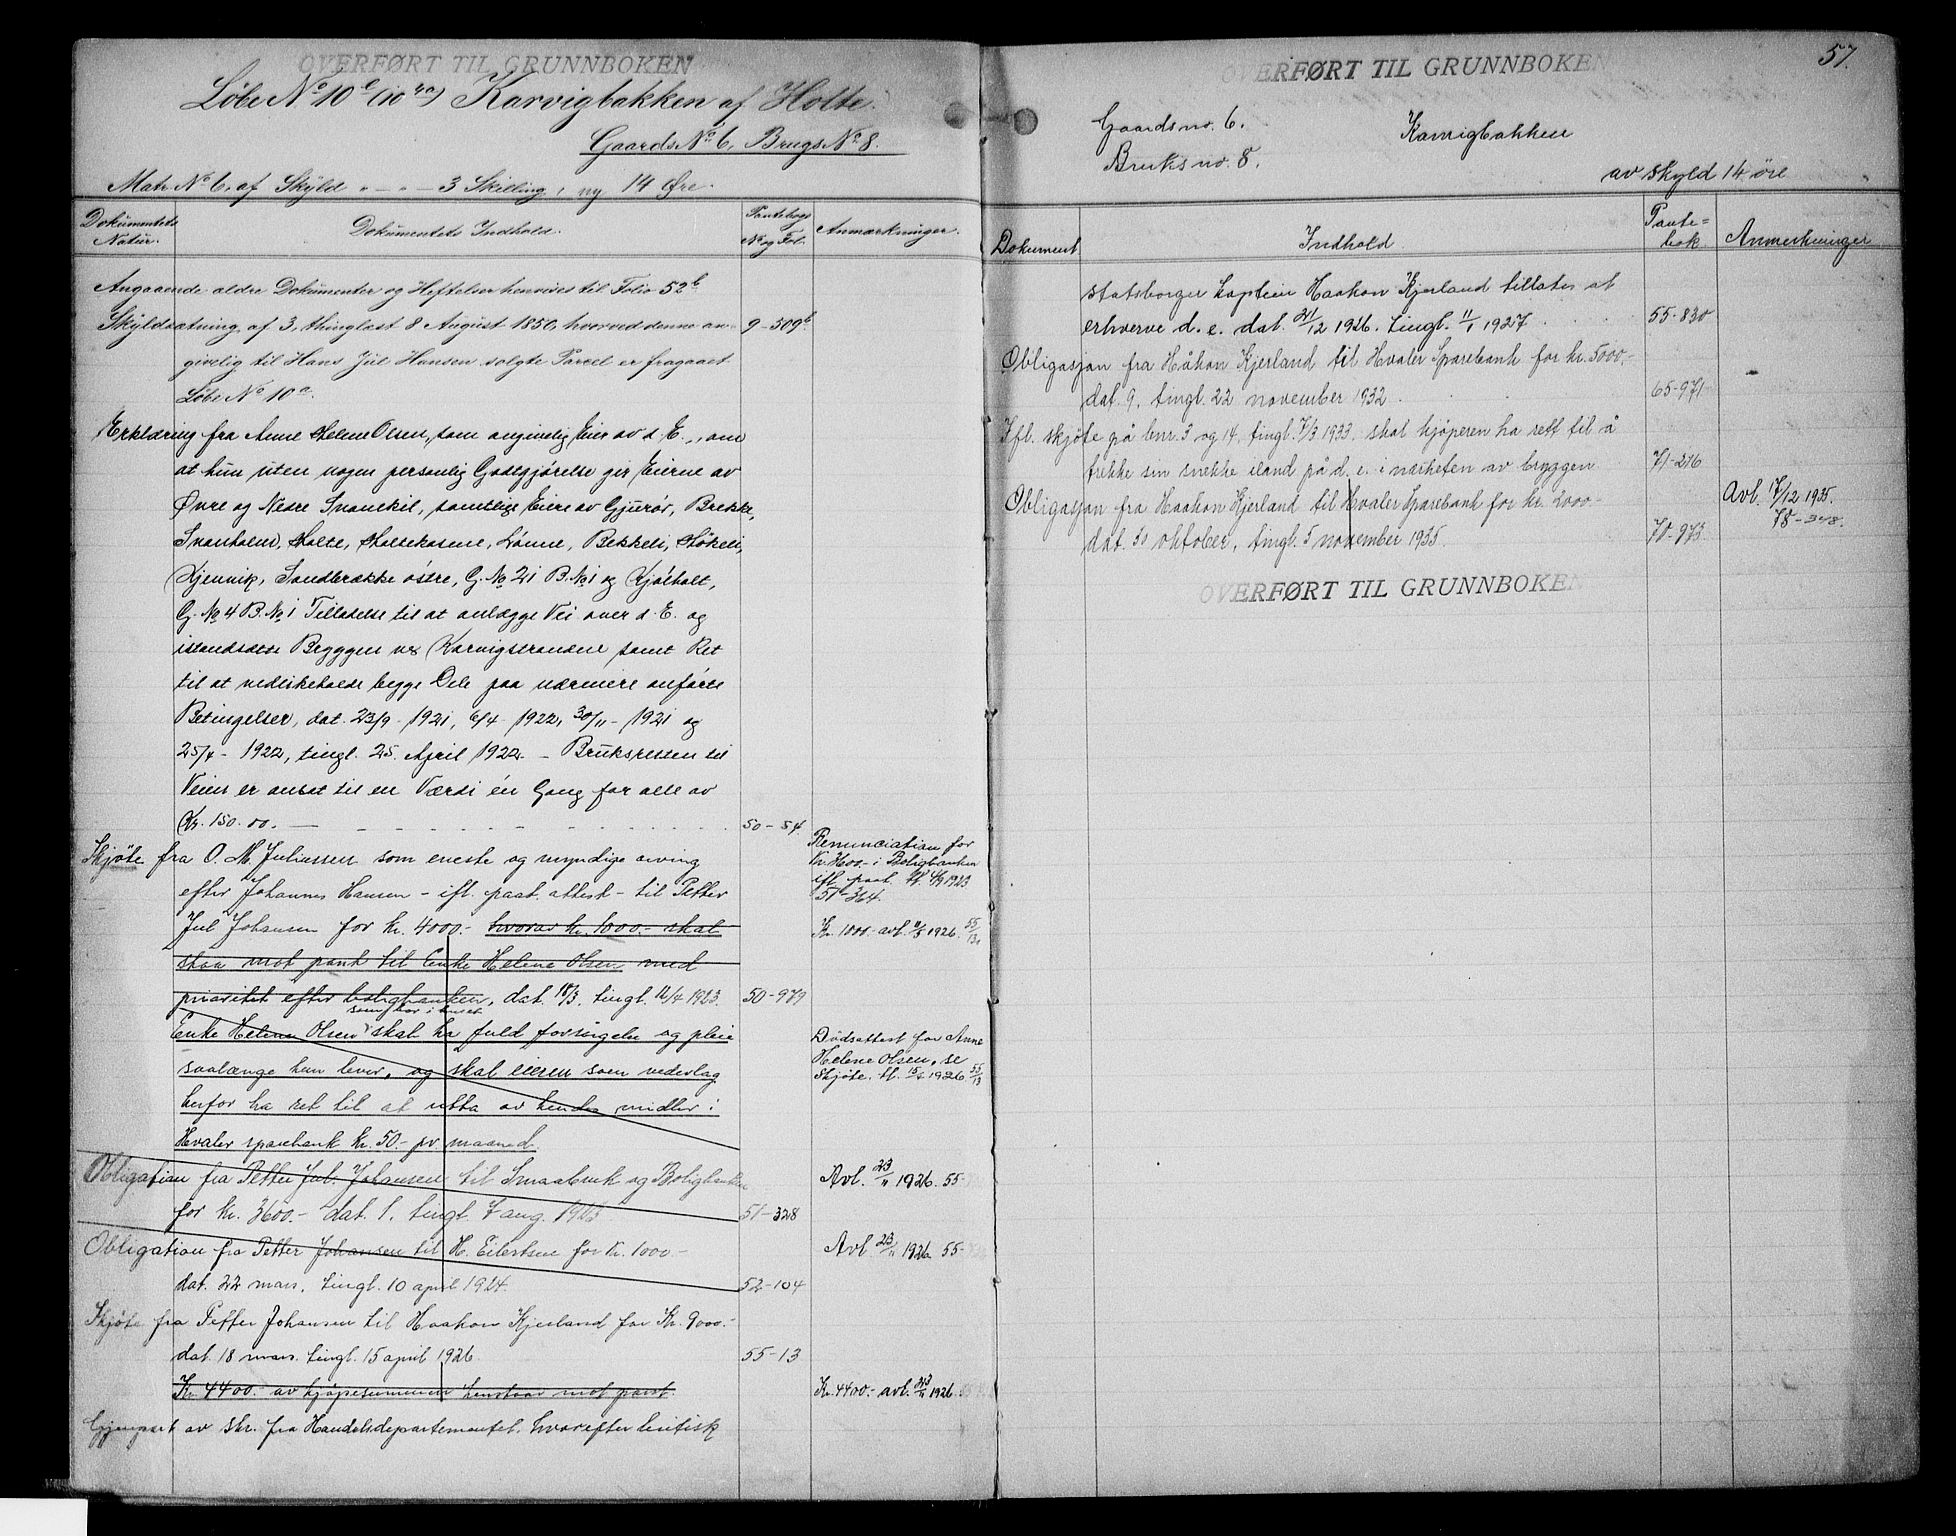 OVERFØRT TIL GRUNNBOKEN
Løbe No 10 e (10 4a) Karvigbakken af Holte.
Gaards No 6, Brugs No 8.
Matr No 6, af Skyld " - " - 3 Skilling, ny 14 Øre.
Dokumentets Natur.
Dokumentets Indhold.
Pantebogs No og Fol.
Anmærkninger.
Angaaende ældre Dokumenter og Heftelser henvises til Folio 52 b
Skyldsætning af 3, thinglæst 8 August 1850, hvorved denne an- 9-509 b
givelig til Hans Jül Hansen solgte Parcel er fragaaet
Løbe No 10 a.
Erklæring fra Anne Helene Olsen, som angivelig Eier av d. E., om
at hun uten nogen personlig Godtgjørelse gir Eierne av
Øvre og Nedre Svanekil, samtlige Eiere av Gjurør, Brekke,
Svanholm, Holte, Holtekasene, Lønne, Bekkeli, Høkeli,
Kjennvik, Sandbrække østre, G. No 21 B. No 1 og Kjølholt,
G. No 4 B. No 1 Tilladelse til at anlægge Vei over d. E. og
istandsætte Bryggen ved Karvigstrandene samt Ret
til at vedlikeholde begge Dele paa nærmere anførte
Betingelser, dat. 23/9 - 1921, 6/4 - 1922, 30/11 - 1921 og
25/4 - 1922, tingl. 25. April 1922. - Bruksretten til
Veien er ansat til en Værdi én Gang for alle av
Kr. 150.00. 50-54
Skjøte fra O. M. Juliussen som eneste og myndige arving
efter Johannes Hansen - ifl. paat. attest - til Petter
Jul Johansen for kr. 4000.- hvorav kr. 1000.- skal
staa mot pant til Enke Helene Olsen med
prioritet efter boligbanken, dat. 18/3, tingl. 12/4 1923. 50-979
som bor i huset
Enke Helene Olsen skal ha fuld forsørgelse og pleie
saalænge hun lever, og skal eieren som vederlag
herfor ha ret til at utta av hendes midler i
Hvaler sparebank kr. 50.- pr. maaned.
Renunciation for
Kr. 3600.- i Boligbanken
ifl. paat.
51-364
Kr. 1000.- avl. 1926. 55/13
Dødsattest for Anne
Helene Olsen, se
Skjøte, tl. 15/4 1926 55/13
Obligation fra Petter Jul. Johansen til Smaabruk og Boligbanken
for kr. 3600.- dat. 1. tingl. 7 aug. 1923 51-328
Avl. 23/11 1926. 55-
Obligation fra Petter Johansen til H. Eilertsen for Kr. 1000.-
dat. 22 mars, tingl. 10 april 1924. 52-104
Avl. 23/11 1926. 55-
Skjøte fra Petter Johansen til Haakon Kjerland for Kr. 9000.-
dat. 18 mars. tingl. 15 april 1926. 55-13
Kr. 4400.- av kjøpesummen henstaar mot pant. Kr. 4400.- avl. 23/11 1926.
Gjenpart av skr. fra Handelsdepartementet, hvorefter britisk
57.
OVERFØRT TIL GRUNNBOKEN
Gaardsno. 6.
Bruksno. 8.
Karvigbakken
av skyld 14 øre
Dokument
Indhold
Pante=bok
Anmerkninger
statsborger kaptein Haakon Kjerland tillates at
erhverve d. e. dat. 21/12 1926. tingl. 11/1 1927. 55-830
Obligasjon fra Håkon Kjerland til Hvaler Sparebank for kr. 5000.-
dat. 9, tingl. 22 november 1932. 65-971
Ifl. skjøte på bnr. 3 og 14, tingl. 7/3 1933. skal kjøperen ha rett til å
trekke sin snekke iland på d. e. i nærheten av bryggen 71-216
Obligasjon fra Haakon Kjerland til Hvaler Sparebank for kr. 2000.-
dat. 30 oktober, tingl. 5 november 1935. 70-973
Avl. 17/12 1935.
78-348.
OVERFØRT TIL GRUNNBOKEN